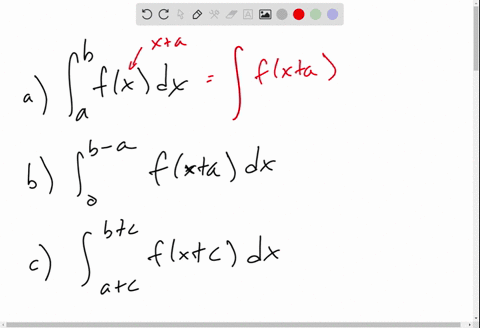 x+a
a) ∫_a^b f(x) dx = ∫ f(x+a)
b) ∫_0^{b-a} f(x+a) dx
c) ∫_{a+c}^{b+c} f(x+c) dx